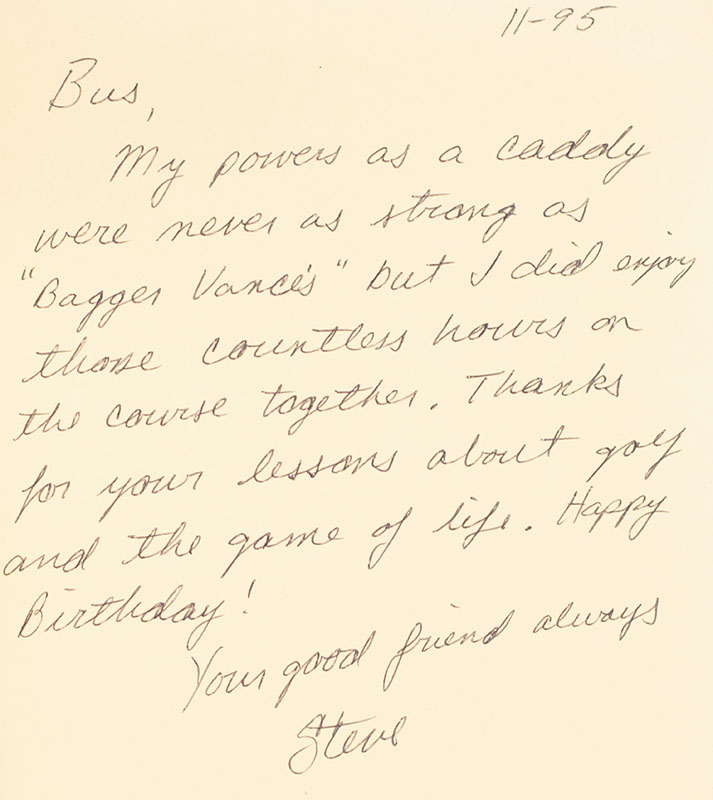 11-95
Bus,
My powers as a caddy
were never as strong as
"Bagger Vance's" but I did enjoy
those countless hours on
the course together. Thanks
for your lessons about golf
and the game of life. Happy
Birthday!
Your good friend always
Steve